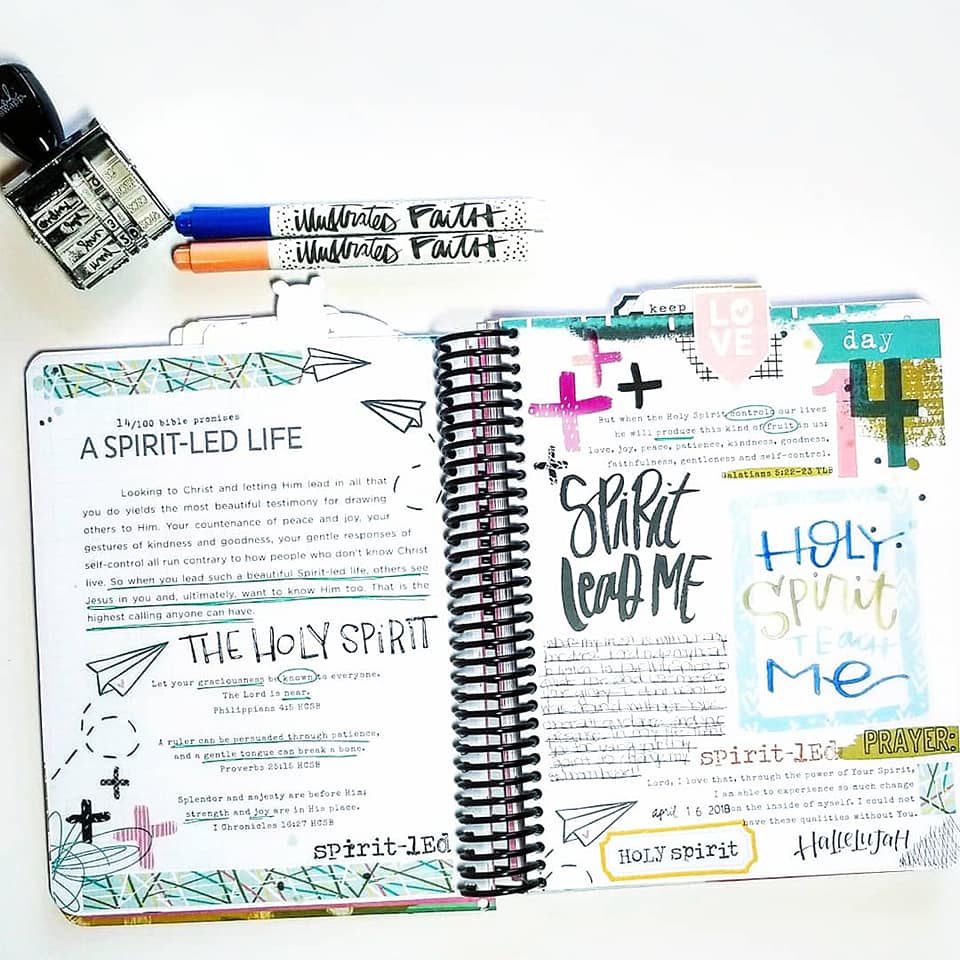 illustrated FAITH
illustrated FAITH
14/100 bible promises
A SPIRIT-LED LIFE
Looking to Christ and letting Him lead in all that
you do yields the most beautiful testimony for drawing
others to Him. Your countenance of peace and joy, your
gestures of kindness and goodness, your gentle responses of
self-control all run contrary to how people who don't know Christ
live. So when you lead such a beautiful Spirit-led life, others see
Jesus in you and, ultimately, want to know Him too. That is the
highest calling anyone can have.
THE HOLY SPIRIT
Let your graciousness be known to everyone.
The Lord is near.
Philippians 4:5 HCSB
A ruler can be persuaded through patience,
and a gentle tongue can break a bone.
Proverbs 25:15 HCSB
Splendor and majesty are before Him;
strength and joy are in His place.
I Chronicles 16:27 HCSB
spirit-lEd
keep
LO
VE
day
14
But when the Holy Spirit controls our lives
he will produce this kind of fruit in us:
love, joy, peace, patience, kindness, goodness,
faithfulness, gentleness and self-control.
Galatians 5:22-23 TLB
SPiRit
leaD ME
HOLY
Spirit
TEach
Me
spirit-lEd
PRAYER:
Lord, I love that, through the power of Your Spirit,
I am able to experience so much change
april 16 2018 on the inside of myself. I could not
have these qualities without You.
HOLY spirit
HalleLUJAH